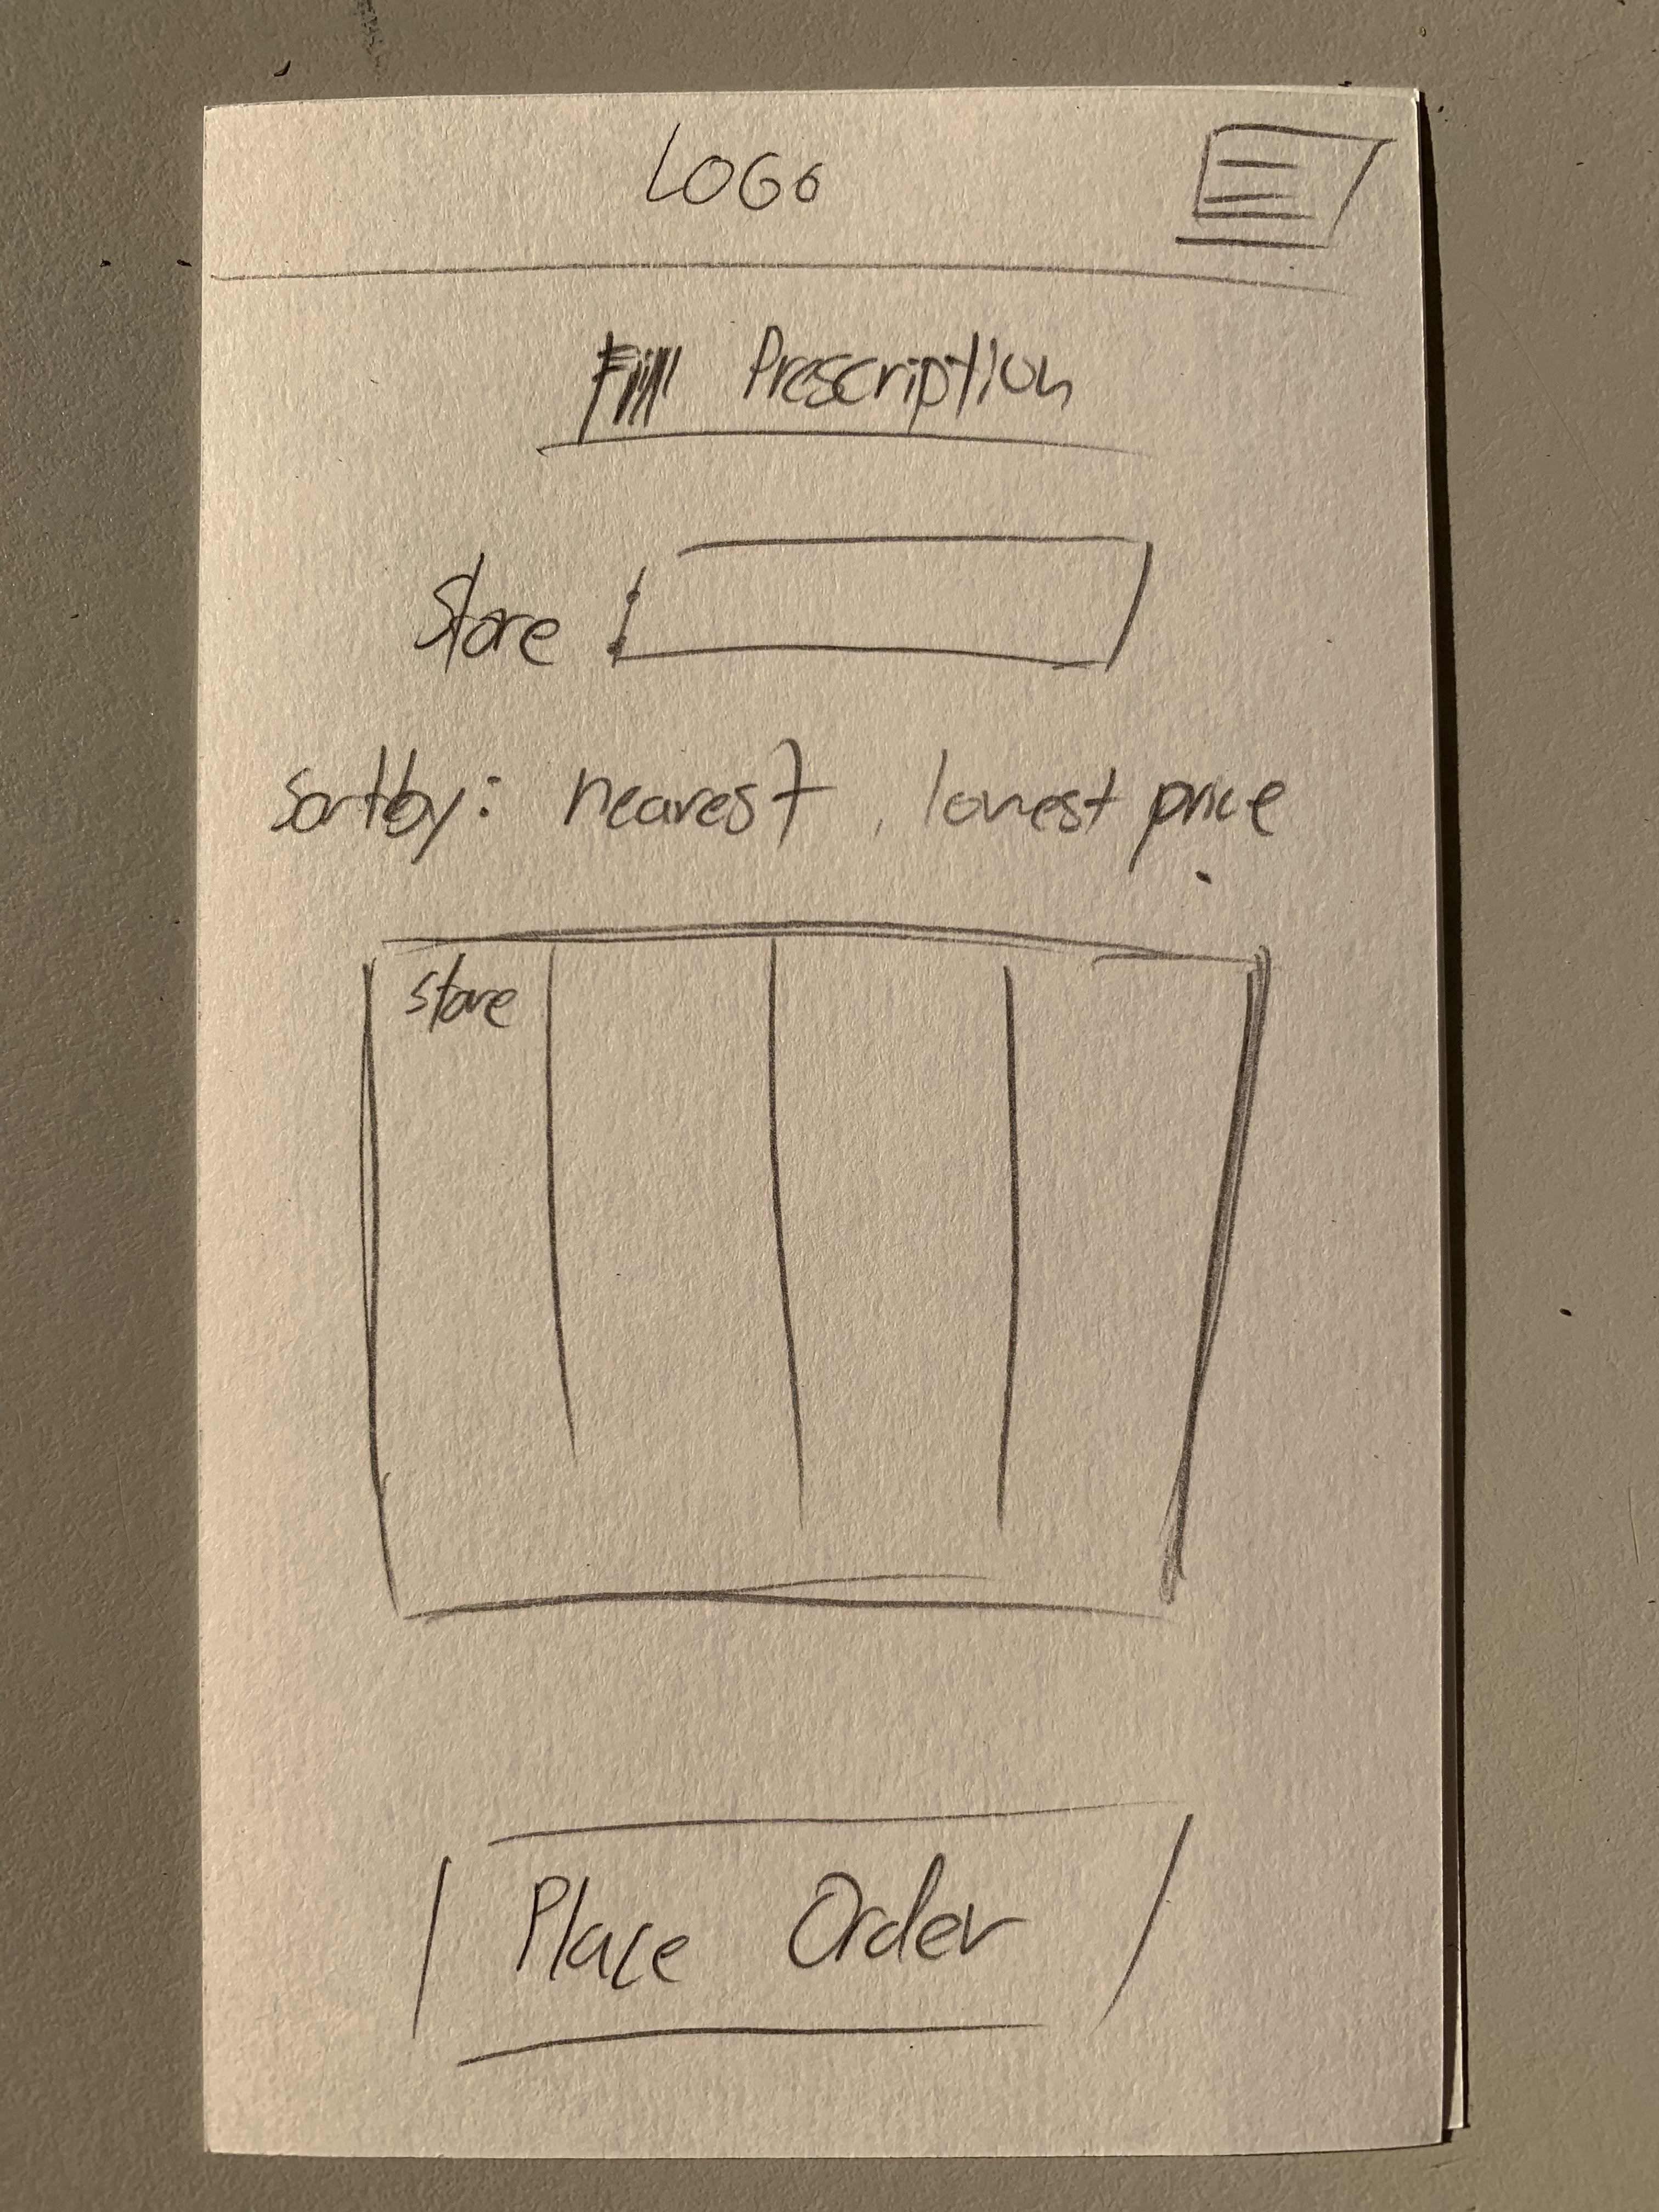 LOGO
Fill Prescription
Store
Sort by: nearest, lowest price
store
Place Order